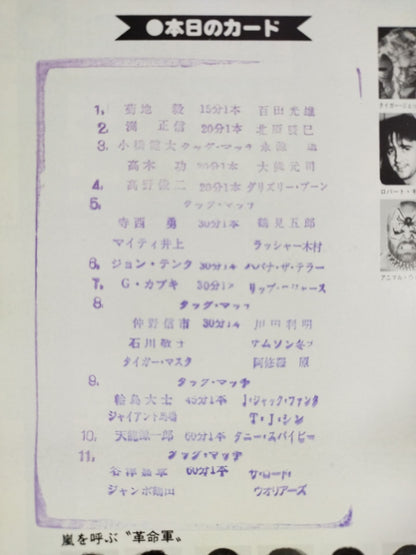 ●本日のカード
1, 菊地 毅 15分1本 百田光雄
2, 渕 正信 20分1本 北原辰巳
3, 小橋健太 タッグ・マッチ 永源 遙
高木 功 20分1本 大熊元司
4, 高野俊二 20分1本 グリズリー・ブーン
5, タッグ・マッチ
寺西 勇 30分1本 鶴見五郎
マイティ井上 ラッシャー木村
6, ジョン・テンタ 30分1本 ハバナ・ザ・テラー
7, G・カブキ 30分1本 リップ・ロジャース
8, タッグ・マッチ
仲野信市 30分1本 川田利明
石川敬士 サムソン冬木
タイガー・マスク 阿修羅 原
9, タッグ・マッチ
輪島大士 45分1本 J・ジャック・ファンク
ジャイアント馬場 T・J・シン
10, 天龍源一郎 60分1本 ダニー・スパイビー
11, タッグ・マッチ
谷津嘉章 60分1本 ザ・ロード・
ジャンボ鶴田 ウオリアーズ
嵐を呼ぶ〝革命軍〟
タイガー・ジェッ
ロバート・
アニマル・ウ